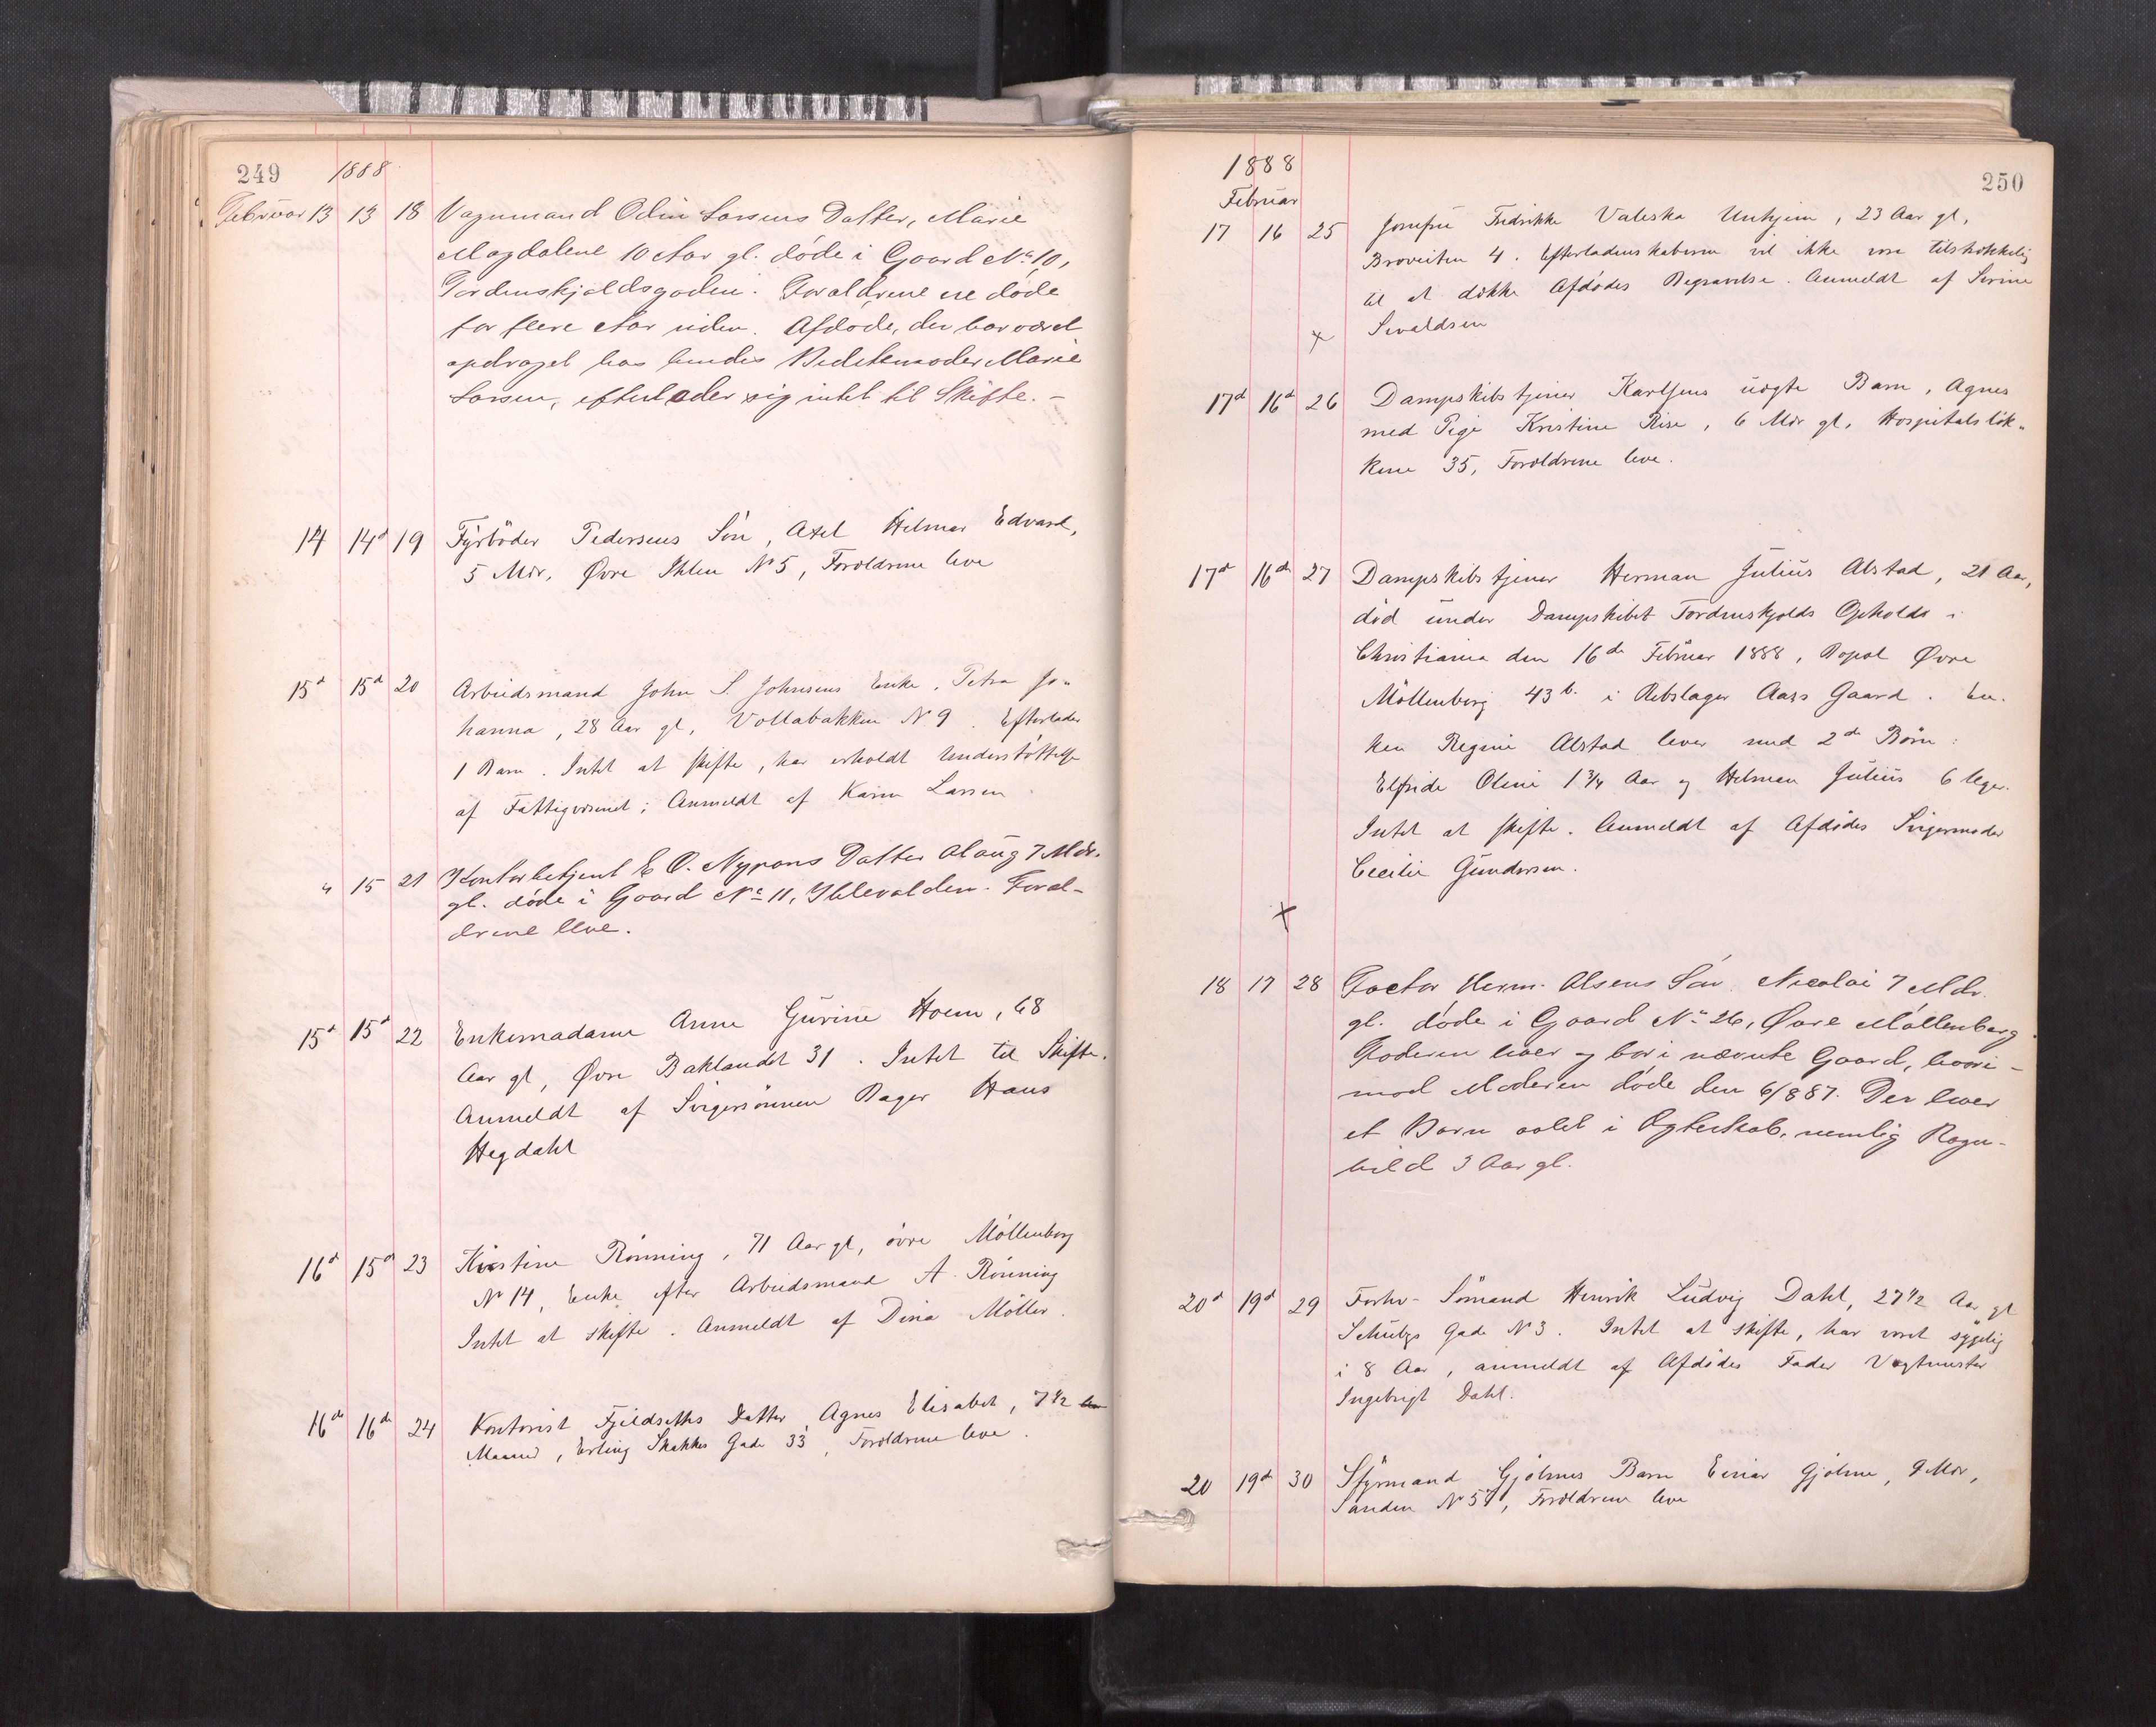 249 1888
Februar 13 13 18 Vognmand Odin Larsens Datter, Marie
Magdalene 10 Aar gl. døde i Gaard No 10,
Tordenskjoldsgaden. Forældrene ere døde
for flere Aar siden. Afdøde, der har været
opdraget hos hendes Bedstemoder Marie
Larsen, efterlader sig intet til Skifte. –
14 14d 19 Fyrbøder Pedersens Søn, Axel Hilmar Edvard,
5 Mdr, Øvre Ihlen No 5, Forældrene leve
15d 15d 20 Arbeidsmand John S. Johnsens Enke, Petra Jo-
hanna, 28 Aar gl, Vollabakken No 9. Efterlader
1 Barn. Intet at skifte, har erholdt Understøttelse
af Fattigvæsenet; Anmeldt af Karen Larsen
" 15 21 Kontorbetjent E O. Nypans Datter Aloug 7 Mdr.
gl. døde i Gaard No 11, Ihlevolden. Foræl-
drene leve.
15d 15d 22 Enkemadame Anne Gurine Hoem, 68
Aar gl, Øvre Baklandet 31. Intet til Skifte.
Anmeldt af Svigersønnen Bager Hans
Hegdahl
16d 15d 23 Kirstine Rønning, 71 Aar gl, øvre Møllenberg
No 14, Enke efter Arbeidsmand A. Rønning
Intet at skifte. Anmeldt af Dina Møller.
16de 16de 24 Kontorist Fjeldseths Datter, Agnes Elisabet, 7 1/2
Maaned, Erling Skakkes Gade 33, Forældrene leve.
1888 250
Februar
17 16 25 Jomfru Fredrikke Valeska Unhjem, 23 Aar gl,
Broveiten 4. Efterladenskaberne vil ikke være tilstrækkelig
til at dække Afdødes Begravelse. Anmeldt af Serine
x Sivaldsen
17d 16d 26 Dampskibstjener Karlsens uægte Barn, Agnes
med Pige Kristine Rise, 6 Mdr gl, Hospitalsløk-
kene 35, Forældrene leve.
17d 16de 27 Dampskibstjener Herman Julius Alstad, 21 Aar,
død under Dampskibet Tordenskjolds Ophold i
Christiania den 16de Februar 1888, Bopæl Øvre
Møllenberg 43b. i Rebslager Aags Gaard. En-
ken Regine Alstad lever med 2de Børn:
Elfride Oline 1 3/4 Aar og Helmen Julius 6 Uger.
Intet at skifte. Anmeldt af Afdødes Svigermoder
Cecilie Gundersen.
x
18 17 28 Factor Herm. Olsens Søn, Nicolai 7 Mdr.
gl. døde i Gaard No 26, Øvre Møllenberg.
Faderen lever og bor i nævnte Gaard, hvori-
mod Moderen døde den 6/8 87. Der lever
et Barn avlet i Ægteskab, nemlig Ragn-
hild 3 Aar gl.
20d 19d 29 Forhv. Sømand Henrik Ludvig Dahl, 27 1/2 Aar gl
Schultz Gade No 3. Intet at skifte, har været sygelig
i 8 Aar, anmeldt af Afdødes Fader Vægtmester
Ingebrigt Dahl.
20 19d 30 Styrmand Gjølmes Barn Einar Gjølme, 9 Mdr,
Sanden No 57, Forældrene leve